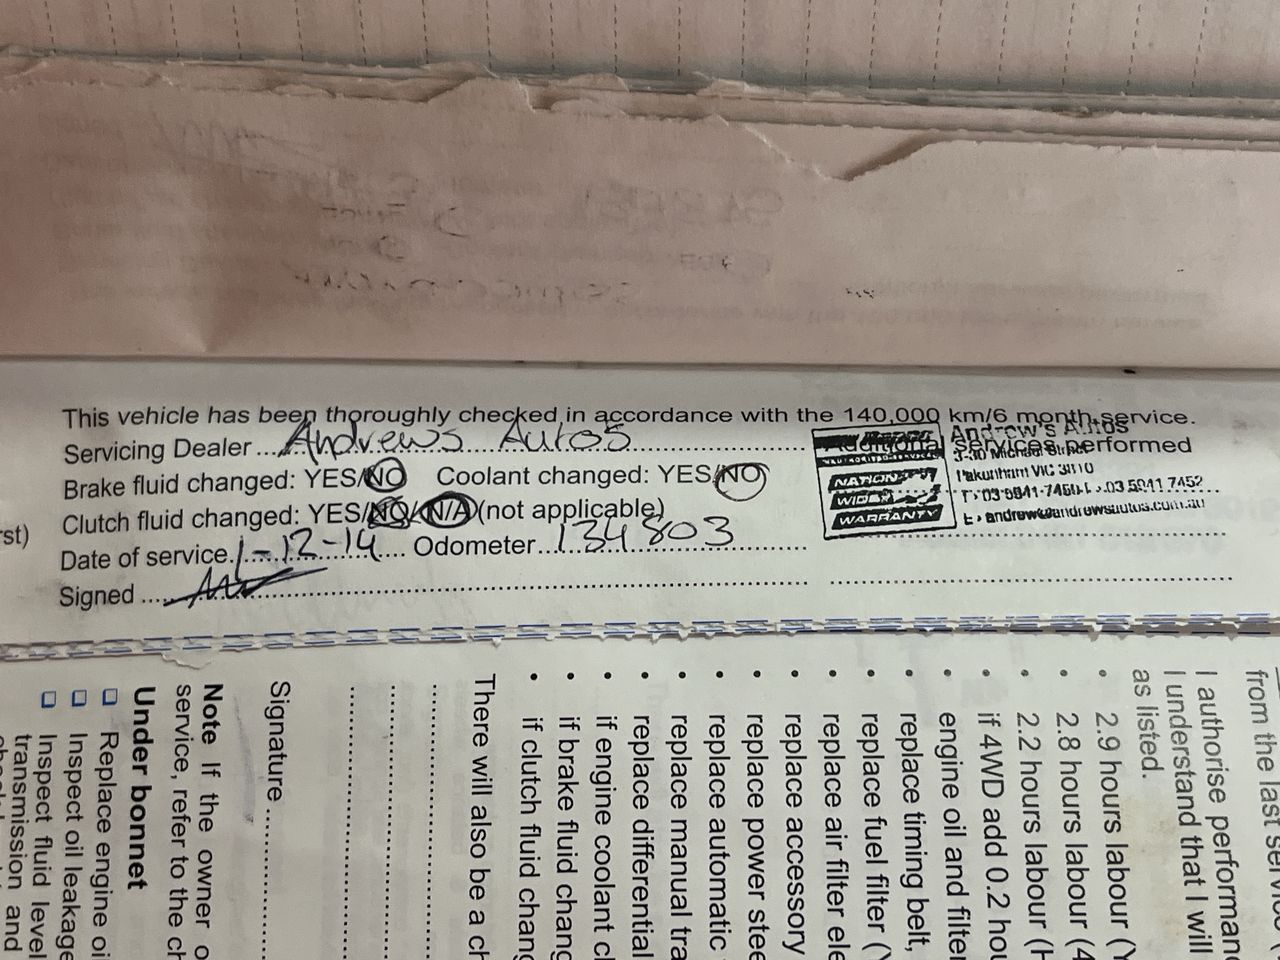 This vehicle has been thoroughly checked in accordance with the 140,000 km/6 month service.
Servicing Dealer Andrews Autos
Additional services performed
Brake fluid changed: YES/NO Coolant changed: YES/NO
Clutch fluid changed: YES/NO/N/A (not applicable)
Date of service 1-12-14 Odometer 134803
Signed
Andrew's Autos
Pakenham VIC 3810
03 5941 7452
NATION
WIDE
WARRANTY
rst)
from the last servi
I authorise performan
I understand that I will
as listed.
• 2.9 hours labour (Y
• 2.8 hours labour (4
• 2.2 hours labour (H
• if 4WD add 0.2 hou
• engine oil and filter
• replace timing belt,
• replace fuel filter (Y
• replace air filter ele
• replace accessory
• replace power stee
• replace automatic
• replace manual tra
• replace differential
• if engine coolant cl
• if brake fluid chang
• if clutch fluid chang
There will also be a ch
Signature
Note If the owner o
service, refer to the ch
Under bonnet
Replace engine oi
Inspect oil leakage
Inspect fluid level
transmission and